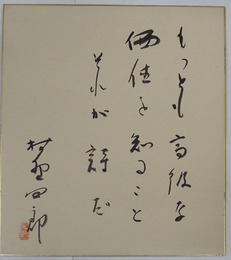 もっとも高級な
価値を知ること
それが詩だ
村野四郎